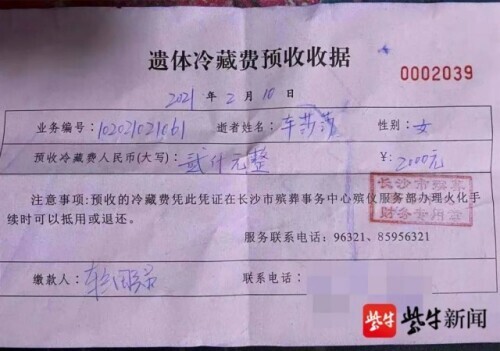 遗体冷藏费预收收据
0002039
2021 年 2 月 10 日
业务编号: 逝者姓名: 车莎莎 性别: 女
预收冷藏费人民币(大写): 贰仟元整 ¥: 2000元
注意事项:预收的冷藏费凭此凭证在长沙市殡葬事务中心殡仪服务部办理火化手
续时可以抵用或退还。
长沙市殡葬
财务专用章
服务联系电话: 96321、85956321
缴款人: 联系电话:
紫牛 紫牛新闻